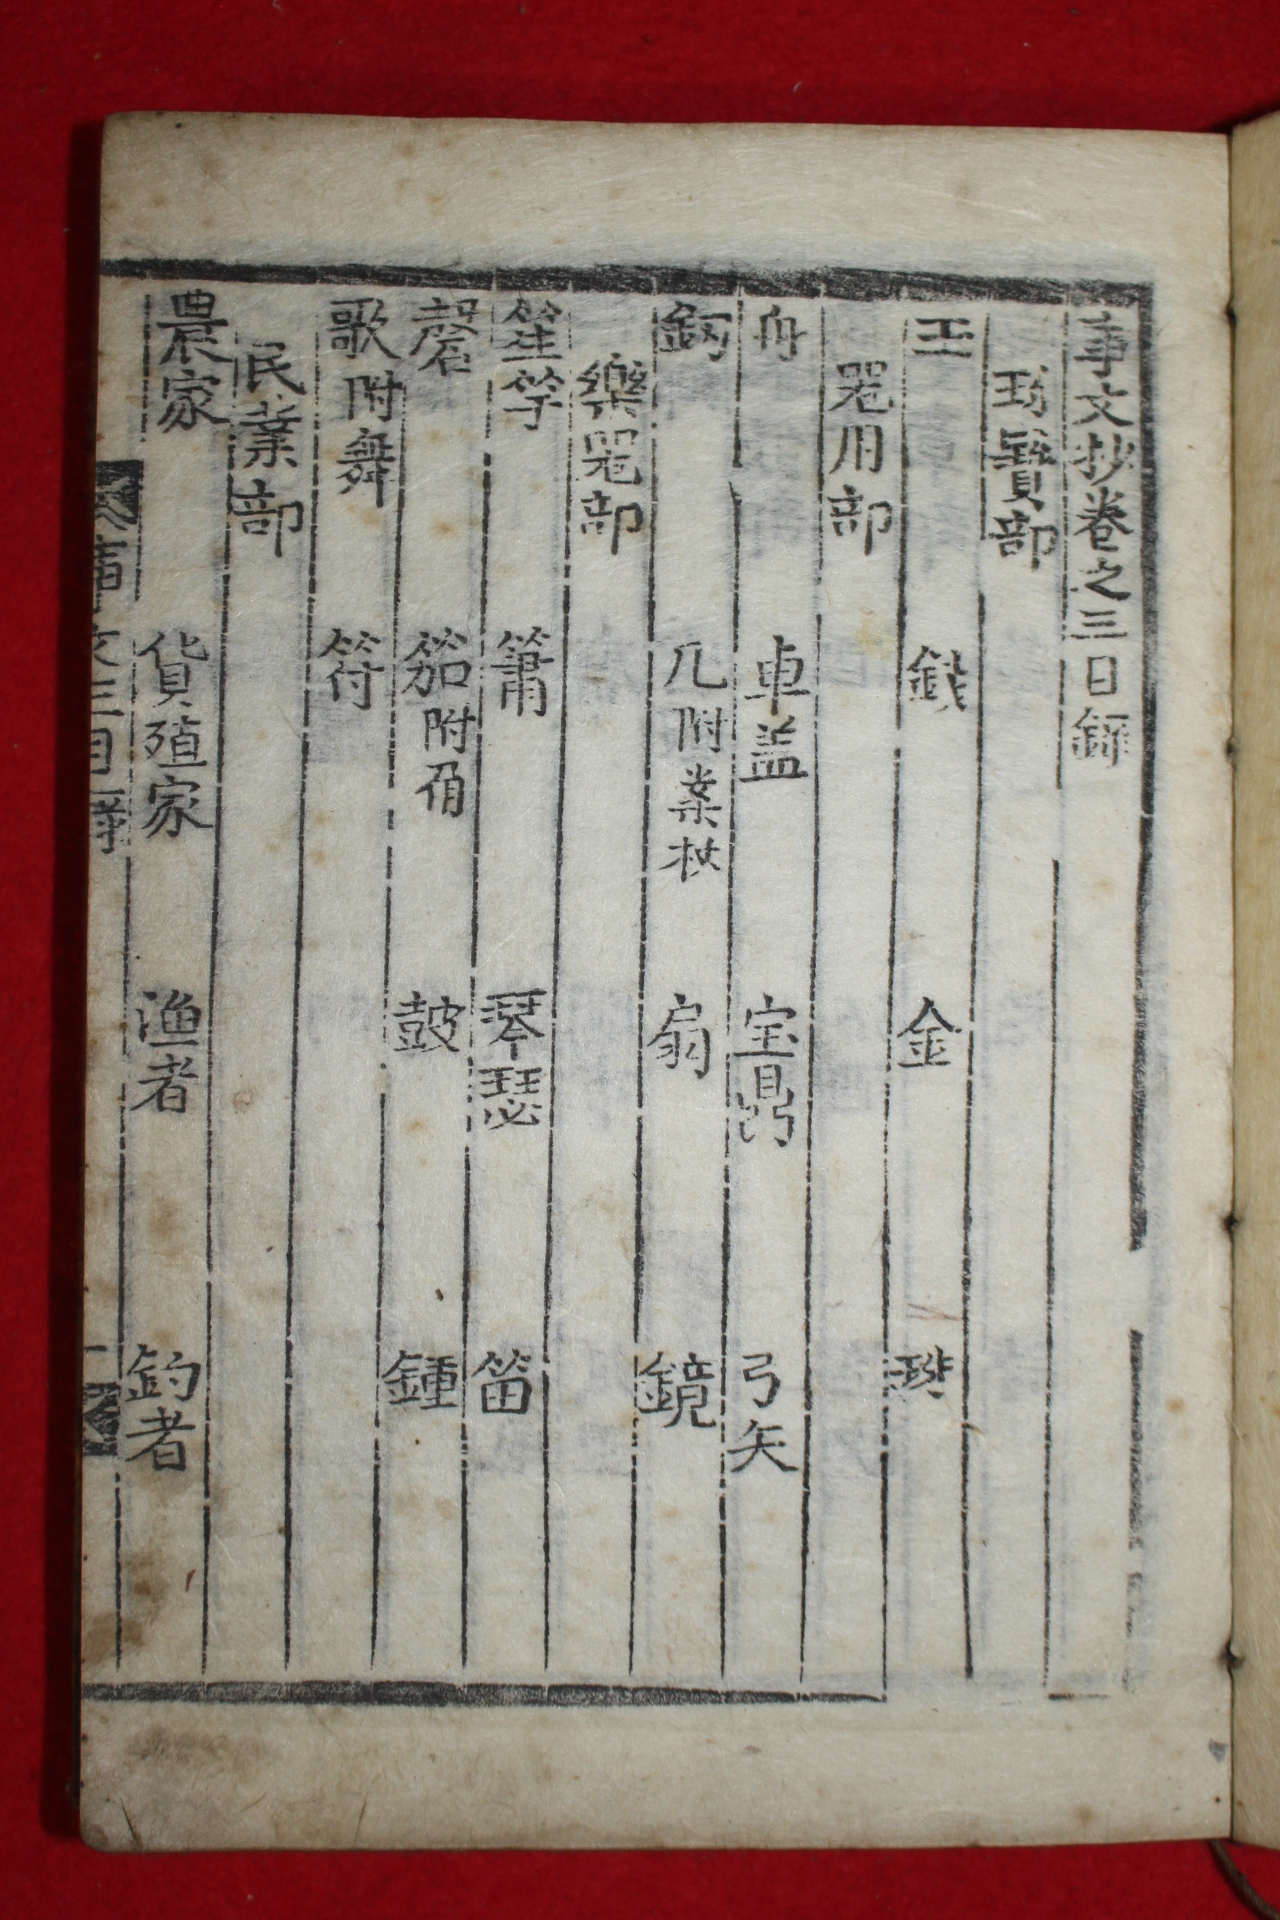 事文抄卷之三目錄
珎寳部
玉 錢 金 珠
器用部
舟 車盖 宝鼎 弓矢
劎 几附案杖 扇 鏡
樂器部
笙竽 簫 琴瑟 笛
磬 笳附角 鼓 鍾
歌附舞 符
民業部
農家 貨殖家 渔者 釣者
事文三目錄 一